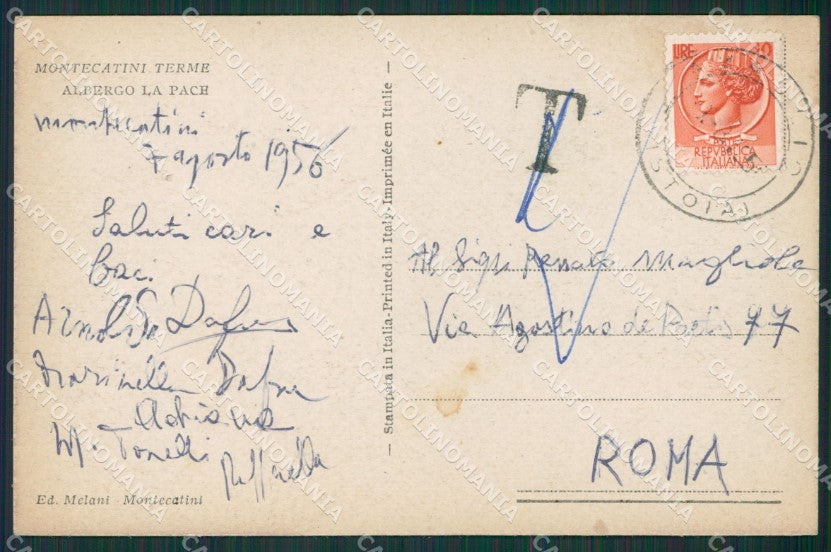 MONTECATINI TERME
ALBERGO LA PACE
Montecatini
7 agosto 1956
Saluti cari e
baci
Arnoldo
Marinella
Adriana
M. Tonelli
Raffaella
Ed. Melani - Montecatini
— Stampata in Italia-Printed in Italy-Imprimée en Italie —
T
LIRE 10
POSTE
REPVBBLICA
ITALIANA
PISTOIA
Al Sig. Renato
Via Agostino de 77
ROMA
CARTOLINOMANIA